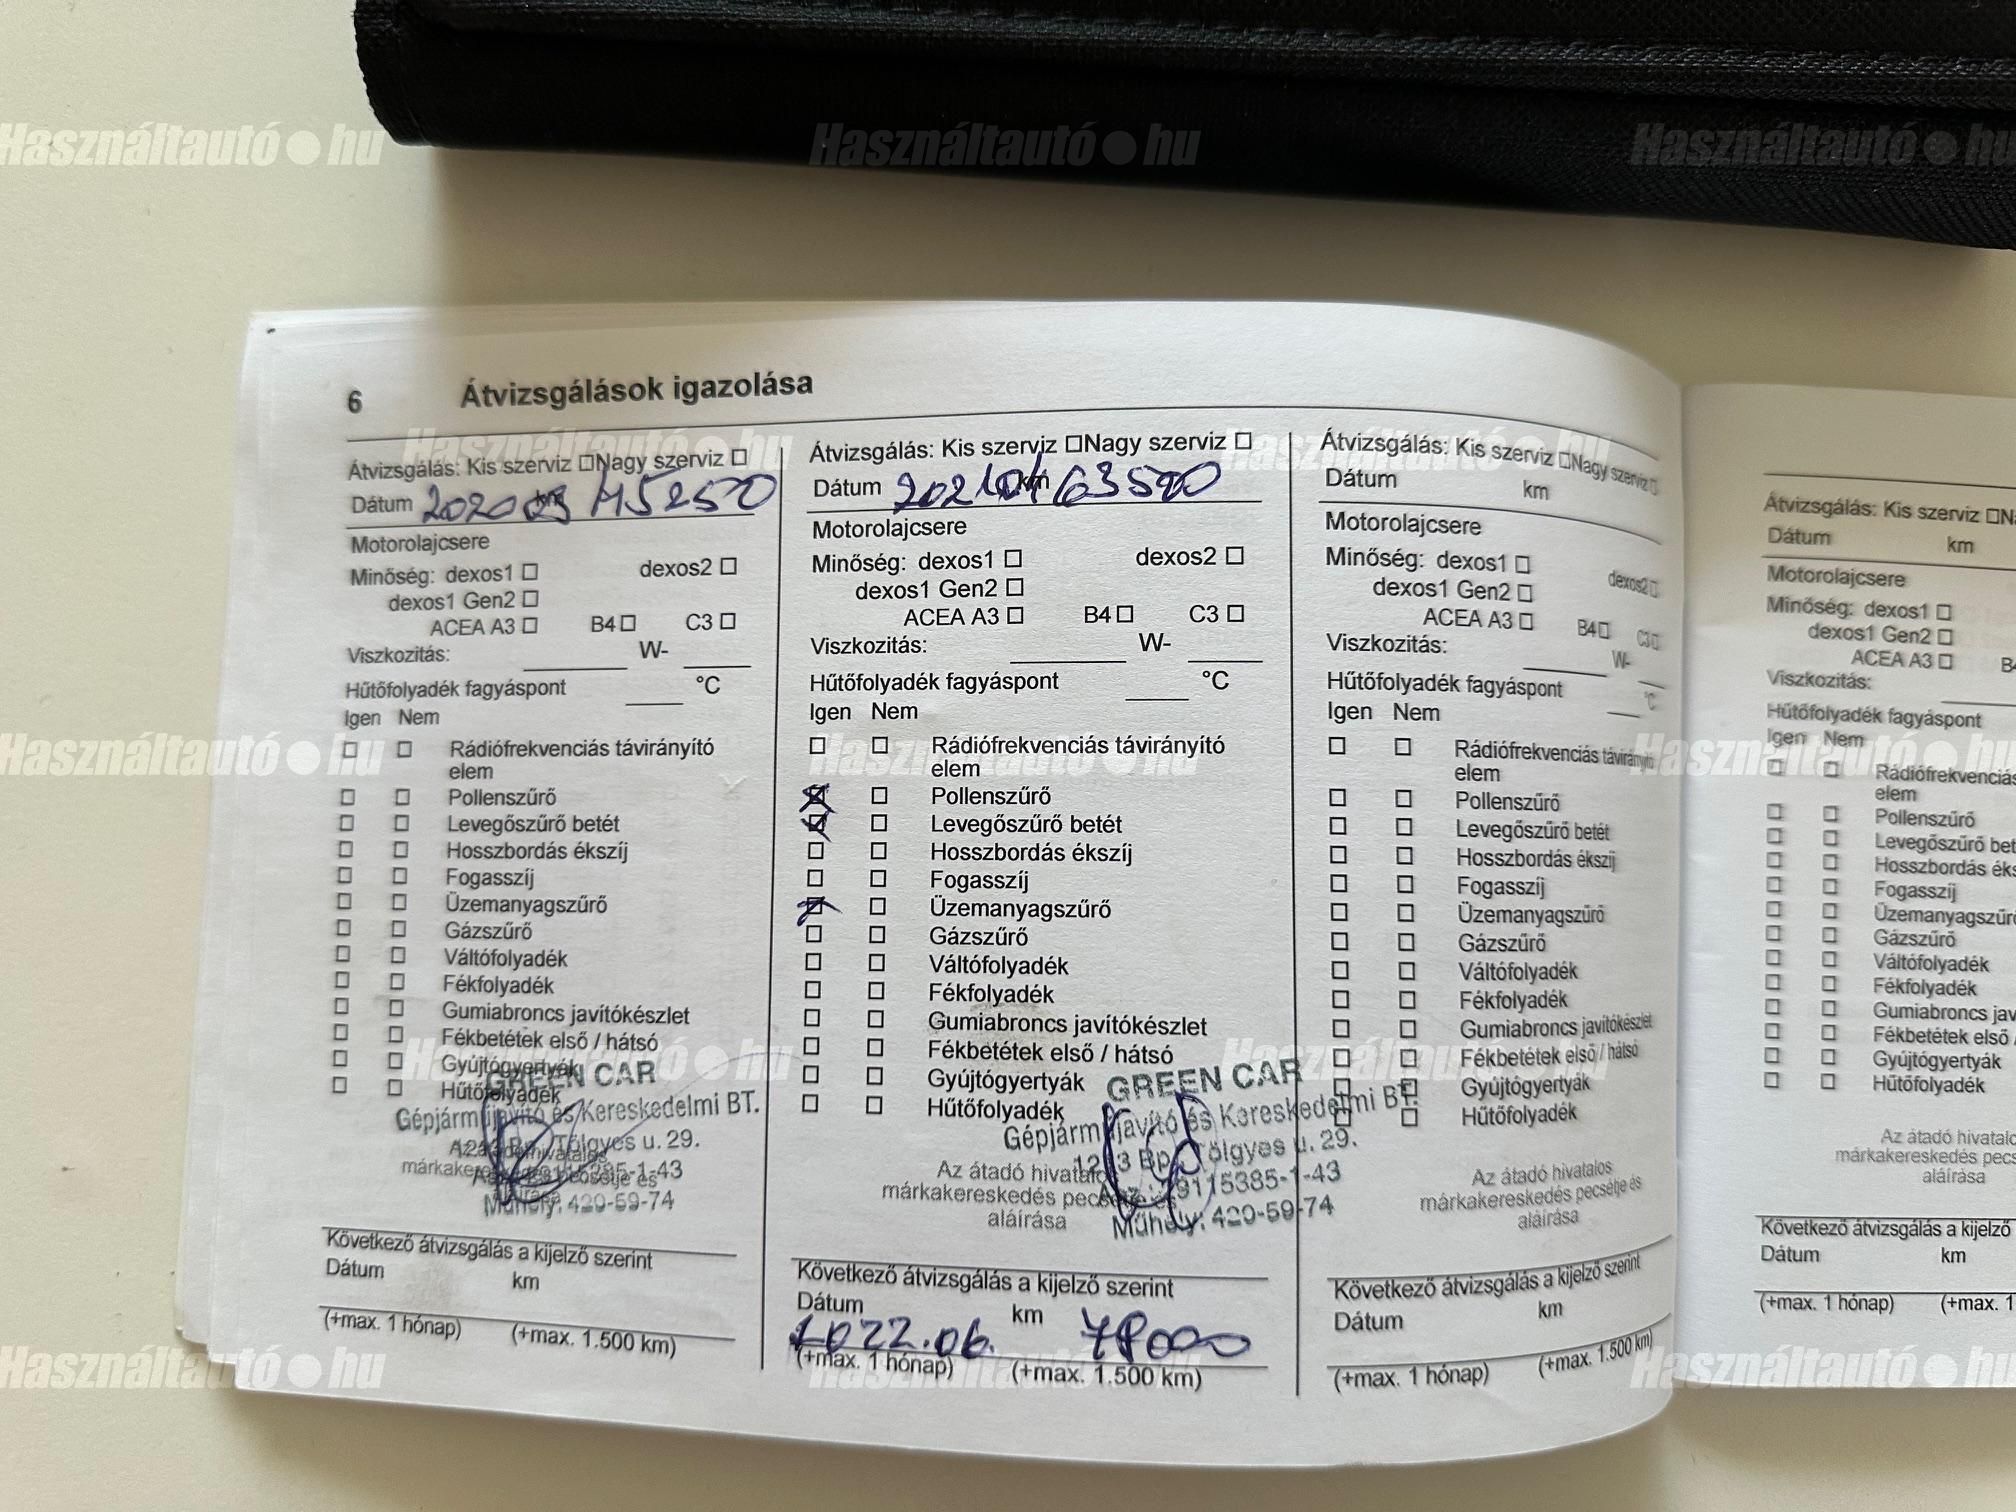 Használtautó.hu
Használtautó.hu
Használtautó.hu
6
Átvizsgálások igazolása
Használtautó.hu
Használtautó.hu
Átvizsgálás: Kis szerviz □ Nagy szerviz □
Dátum 2020 03 km 45250
Motorolajcsere
Minőség: dexos1 □ dexos2 □
dexos1 Gen2 □
ACEA A3 □ B4 □ C3 □
Viszkozitás: W-
Hűtőfolyadék fagyáspont °C
Igen Nem
□ □ Rádiófrekvenciás távirányító
elem
□ □ Pollenszűrő
□ □ Levegőszűrő betét
□ □ Hosszbordás ékszíj
□ □ Fogasszíj
□ □ Üzemanyagszűrő
□ □ Gázszűrő
□ □ Váltófolyadék
□ □ Fékfolyadék
□ □ Gumiabroncs javítókészlet
□ □ Fékbetétek első / hátsó
□ □ Gyújtógyertyák
□ □ Hűtőfolyadék
GREEN CAR
Gépjárműjavító és Kereskedelmi BT.
Tölgyes u. 29.
Műhely: 420-59-74
Következő átvizsgálás a kijelző szerint
Dátum km
(+max. 1 hónap) (+max. 1.500 km)
Átvizsgálás: Kis szerviz □ Nagy szerviz □
Dátum 2021 04 km 63500
Motorolajcsere
Minőség: dexos1 □ dexos2 □
dexos1 Gen2 □
ACEA A3 □ B4 □ C3 □
Viszkozitás: W-
Hűtőfolyadék fagyáspont °C
Igen Nem
□ □ Rádiófrekvenciás távirányító
elem
☒ □ Pollenszűrő
☒ □ Levegőszűrő betét
□ □ Hosszbordás ékszíj
□ □ Fogasszíj
☒ □ Üzemanyagszűrő
□ □ Gázszűrő
□ □ Váltófolyadék
□ □ Fékfolyadék
□ □ Gumiabroncs javítókészlet
□ □ Fékbetétek első / hátsó
□ □ Gyújtógyertyák
□ □ Hűtőfolyadék
GREEN CAR
Gépjárműjavító és Kereskedelmi BT.
Tölgyes u. 29.
Az átadó hivatalos
márkakereskedés
aláírása
Műhely: 420-59-74
Következő átvizsgálás a kijelző szerint
Dátum km
2022.06. 78000
(+max. 1 hónap) (+max. 1.500 km)
Átvizsgálás: Kis szerviz □ Nagy szerviz □
Dátum km
Motorolajcsere
Minőség: dexos1 □ dexos2 □
dexos1 Gen2 □
ACEA A3 □ B4 □ C3 □
Viszkozitás: W-
Hűtőfolyadék fagyáspont °C
Igen Nem
□ □ Rádiófrekvenciás távirányító
elem
□ □ Pollenszűrő
□ □ Levegőszűrő betét
□ □ Hosszbordás ékszíj
□ □ Fogasszíj
□ □ Üzemanyagszűrő
□ □ Gázszűrő
□ □ Váltófolyadék
□ □ Fékfolyadék
□ □ Gumiabroncs javítókészlet
□ □ Fékbetétek első / hátsó
□ □ Gyújtógyertyák
□ □ Hűtőfolyadék
Az átadó hivatalos
márkakereskedés pecsétje és
aláírása
Következő átvizsgálás a kijelző szerint
Dátum km
(+max. 1 hónap) (+max. 1.500 km)
Átvizsgálás: Kis szerviz □ N
Dátum km
Motorolajcsere
Minőség: dexos1 □
dexos1 Gen2 □
ACEA A3 □ B4
Viszkozitás:
Hűtőfolyadék fagyáspont
Igen Nem
□ □ Rádiófrekvenciás
elem
□ □ Pollenszűrő
□ □ Levegőszűrő bet
□ □ Hosszbordás éks
□ □ Fogasszíj
□ □ Üzemanyagszűrő
□ □ Gázszűrő
□ □ Váltófolyadék
□ □ Fékfolyadék
□ □ Gumiabroncs jav
□ □ Fékbetétek első /
□ □ Gyújtógyertyák
□ □ Hűtőfolyadék
Az átadó hivatalo
márkakereskedés pecs
aláírása
Következő átvizsgálás a kijelző
Dátum km
(+max. 1 hónap) (+max. 1
Használtautó.hu
Használtautó.hu
Használtautó.hu
Használtautó.hu
Használtautó.hu
Használtautó.hu
Használtautó.hu
Használtautó.hu